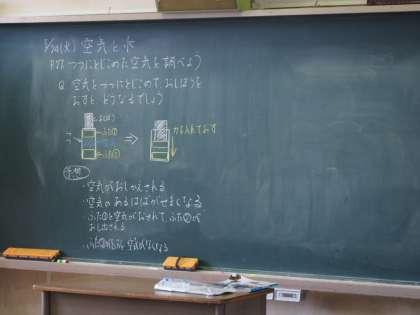 5/20(火) 空気と水
P.77 つつにとじこめた空気を調べよう
Q 空気をつつにとじこめて、おしぼうを
おすと どうなるでしょう
おしぼう
ふた①
ふた②
⇒
力を入れておす
予想
・空気がおしかえされる
・空気の あるはばがせまくなる
・ふた①と空気がおされて、ふた②が
おし出される
空気がなくなる